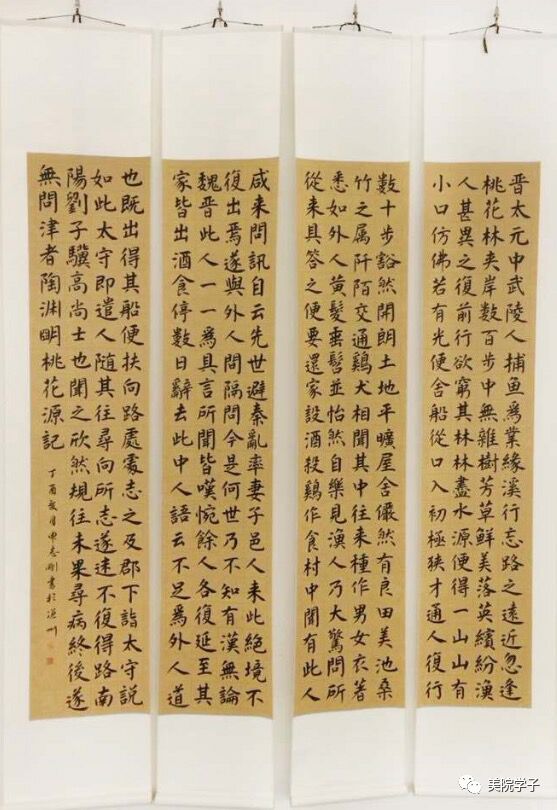 晋太元中武陵人捕鱼為業緣溪行忘路之遠近忽逢
桃花林夹岸數百步中無雜樹芳草鲜美落英繽紛漁
人甚異之復前行欲窮其林林盡水源便得一山山有
小口仿佛若有光便舍船從口入初極狭才通人復行
數十步豁然開朗土地平曠屋舍儼然有良田美池桑
竹之属阡陌交通鷄犬相聞其中往来種作男女衣著
悉如外人黄髮垂髫並怡然自樂見漁人乃大驚問所
從来具答之便要還家設酒殺鷄作食村中聞有此人
咸来問訊自云先世避秦亂率妻子邑人来此絶境不
復出焉遂與外人間隔問今是何世乃不知有漢無論
魏晋此人一一為具言所聞皆嘆惋餘人各復延至其
家皆出酒食停數日辭去此中人語云不足為外人道
也既出得其船便扶向路處處志之及郡下詣太守説
如此太守即遣人随其往尋向所志遂迷不復得路南
陽劉子驥高尚士也聞之欣然規往未果尋病終後遂
無問津者陶渊明桃花源記
丁酉 月 志刚書於
美院学子